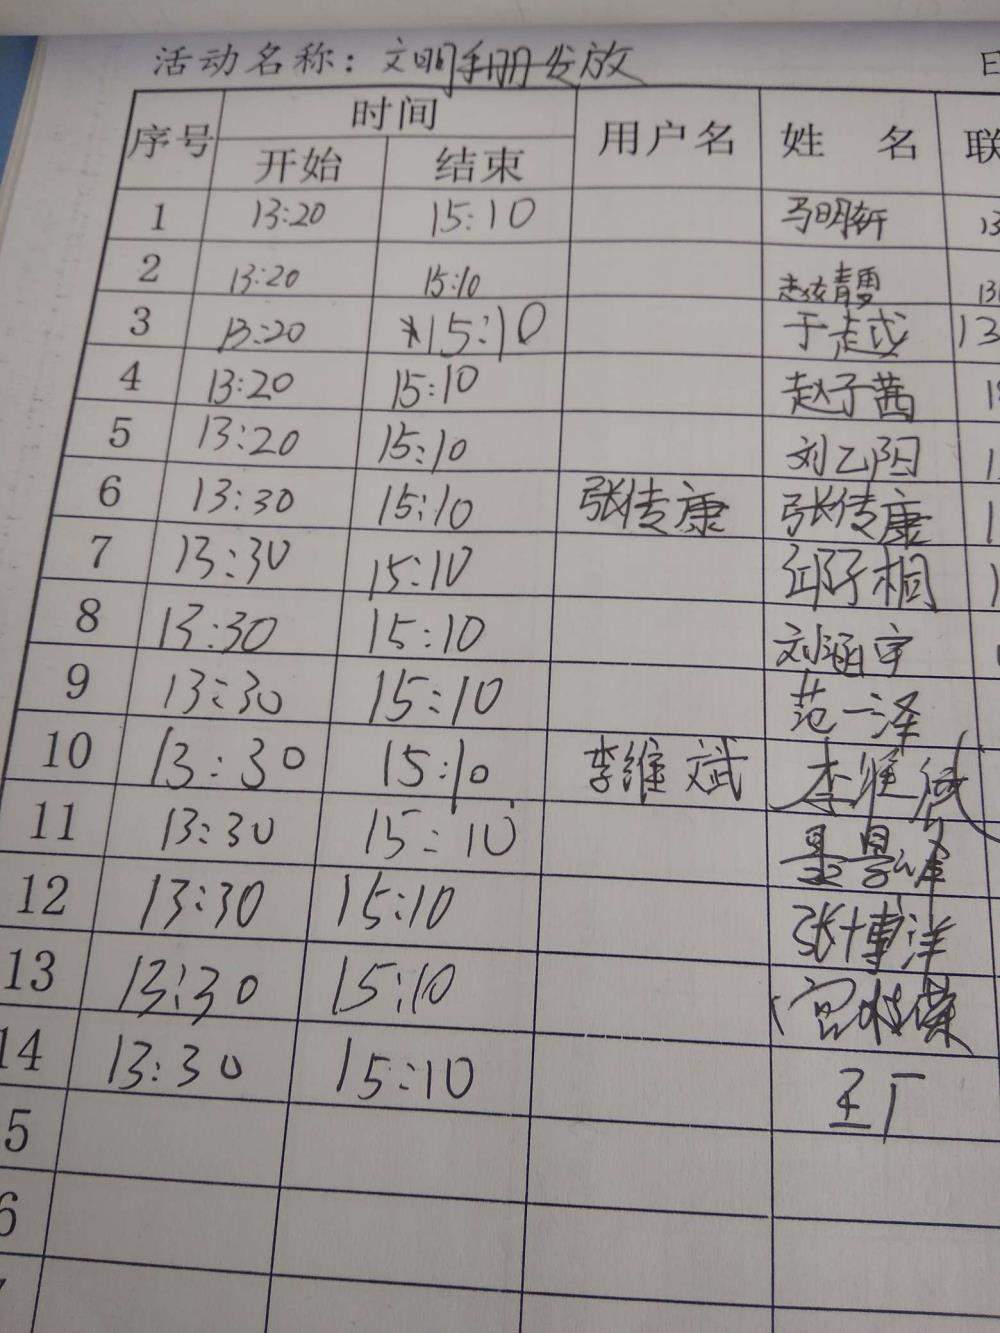 活动名称：文明手册发放
序号 时间 用户名 姓 名 联
开始 结束
1 13:20 15:10 马明轩 13
2 13:20 15:10 赵 青 13
3 13:20 15:10 于志成 13
4 13:20 15:10 赵子茜 1
5 13:20 15:10 刘乙阳 1
6 13:30 15:10 张传康 张传康 1
7 13:30 15:10 邱子桐 1
8 13:30 15:10 刘涵宇
9 13:30 15:10 范一泽
10 13:30 15:10 李维斌 李维斌
11 13:30 15:10
12 13:30 15:10 张博洋
13 13:30 15:10 宫
14 13:30 15:10 王厂
5
6